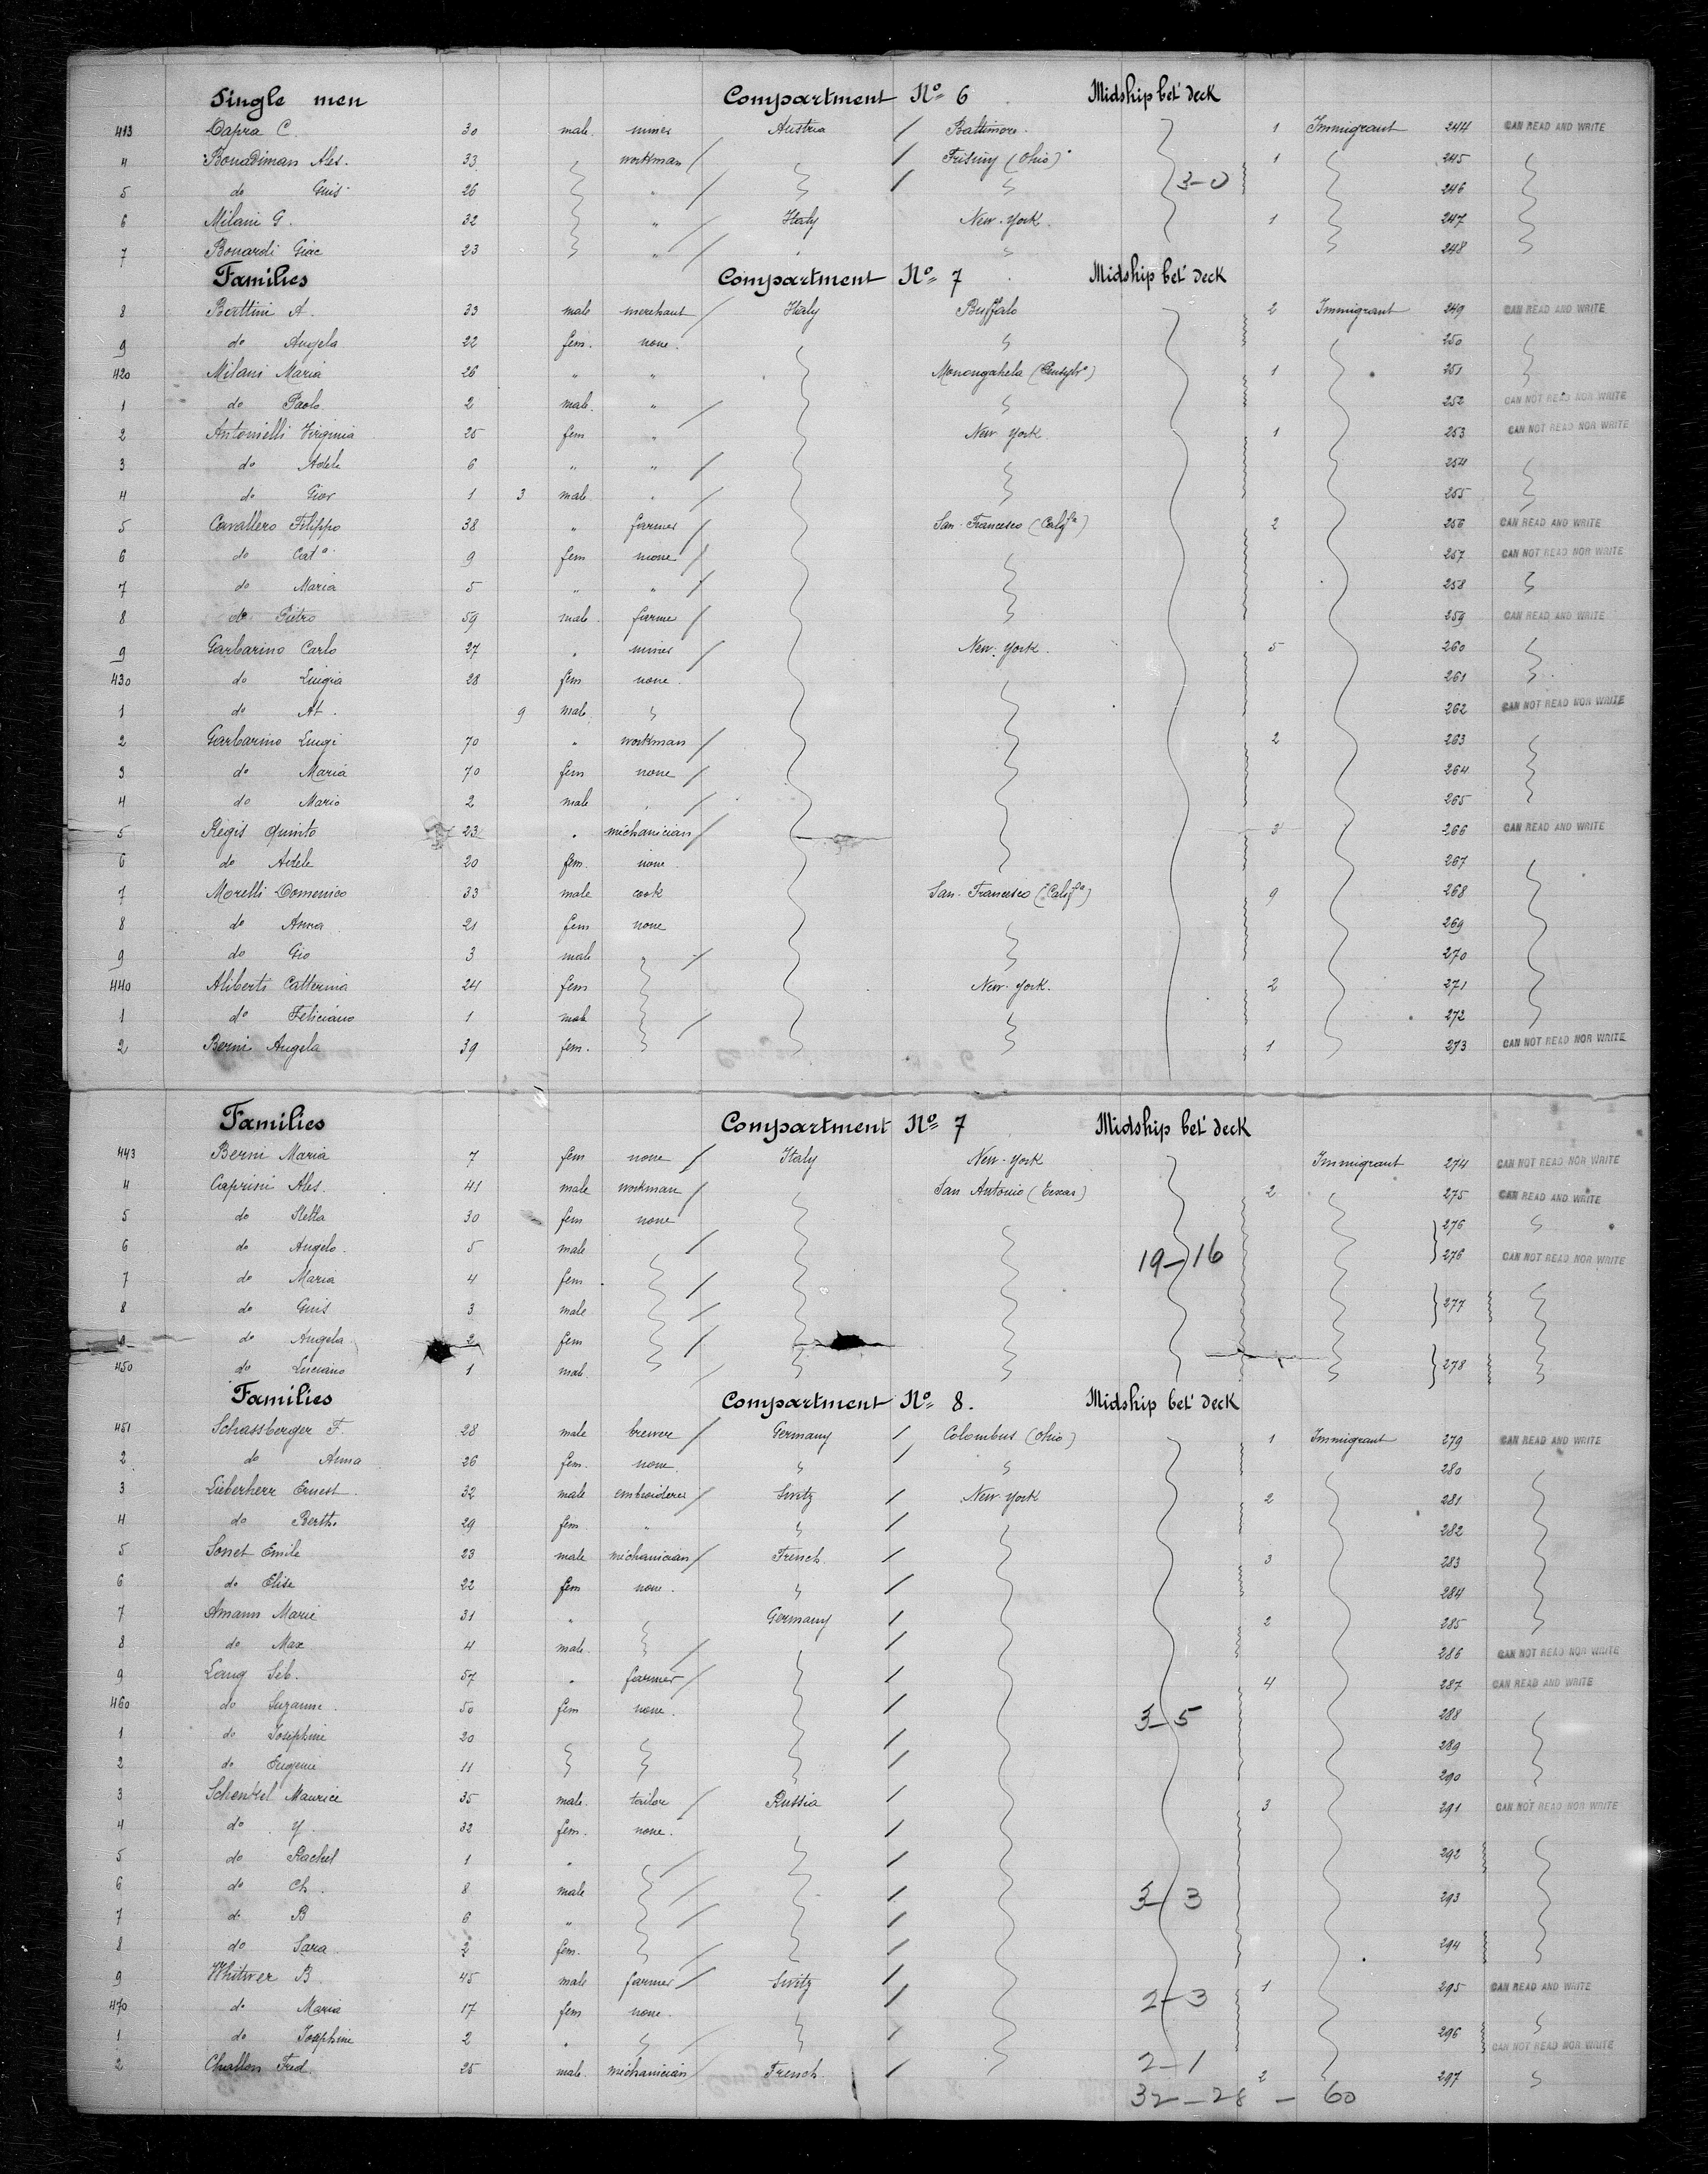 Single men Compartment No 6 Midship bet' deck
413 Capra C. 30 male. miner Austria Baltimore. 1 Immigrant 244 CAN READ AND WRITE
4 Bonadiman Ales. 33 workman (Ohio) 1 245
5 do Guis 26 " 3-0 246
6 Milani G. 32 " Italy New-York. 1 247
7 Bonardi Giac 23 " 248
Families Compartment No 7 Midship bet' deck
8 Bettini A. 33 male merchant Italy Buffalo 2 Immigrant 249 CAN READ AND WRITE
9 do Angela 22 fem. none. 250
420 Milani Maria 26 " " Monongahela 1 251
1 do Paolo 2 male. " 252 CAN NOT READ NOR WRITE
2 Antonielli Virginia 25 fem " New York. 1 253 CAN NOT READ NOR WRITE
3 do Adele 6 " " 254
4 do Giov 1 3 male. " 255
5 Cavallero Filippo 38 " farmer San-Francesco (Calfa) 2 256 CAN READ AND WRITE
6 do Cata 9 fem none 257 CAN NOT READ NOR WRITE
7 do Maria 5 " " 258
8 do Pietro 59 male. farme 259 CAN READ AND WRITE
9 Garbarino Carlo 27 " miner New-York. 5 260
430 do Luigia 28 fem none. 261
1 do At. 9 male. 262 CAN NOT READ NOR WRITE
2 Garbarino Luigi 70 " workman 2 263
3 do Maria 70 fem none 264
4 do Mario 2 male " 265
5 Regis Quinto 23 " méchanician 3 266 CAN READ AND WRITE
6 do Adele 20 fem. none 267
7 Morelli Domenico 33 male cook San-Francesco (Califa) 9 268
8 do Anna 21 fem none 269
9 do Gio 3 male 270
440 Aliberti Catterina 24 fem New-York. 2 271
1 do Feliciano 1 male 272
2 Berni Angela 39 fem. 1 273 CAN NOT READ NOR WRITE
Families Compartment No 7 Midship bet' deck
443 Berni Maria 7 fem none Italy New-York Immigrant 274 CAN NOT READ NOR WRITE
4 Caprini Ales. 41 male workman San Antonio (Texas) 2 275 CAN READ AND WRITE
5 do Stella 30 fem none 276
6 do Angelo. 5 male 19-16 276 CAN NOT READ NOR WRITE
7 do Maria 4 fem
8 do Guis 3 male 277
9 do Angela 2 fem
450 do Luciano 1 male 278
Families Compartment No 8. Midship bet' deck
451 Schassberger F. 28 male brewer Germany Colombus (Ohio) 1 Immigrant 279 CAN READ AND WRITE
2 do Anna 26 fem. none. 280
3 Lieberherr Ernest. 32 male embroiderer Switz New-York 2 281
4 do Bertha 29 fem. " 282
5 Sonet Emile 23 male méchanician French. 3 283
6 do Elise 22 fem none. 284
7 Amann Marie 31 " Germany 2 285
8 do Max 4 male. 286 CAN NOT READ NOR WRITE
9 Lang Seb. 57 " farmer 4 287 CAN READ AND WRITE
460 do Suzanne. 50 fem none. 3-5 288
1 do Josephine 20 289
2 do Eugenie 11 290
3 Schenkel Maurice 35 male. tailor Russia 3 291 CAN NOT READ NOR WRITE
4 do Y. 32 fem. none.
5 do Rachel 1 " 292
6 do Ch. 8 male 3-3 293
7 do B 6 "
8 do Sara 2 fem. 294
9 Whitwer B. 45 male farmer Switz 1 295 CAN READ AND WRITE
470 do Maria 17 fem none. 2-3
1 do Josephine 2 " 296 CAN NOT READ NOR WRITE
2 Challon Fred. 25 male. méchanician French. 2-1 2 297
32-28-60